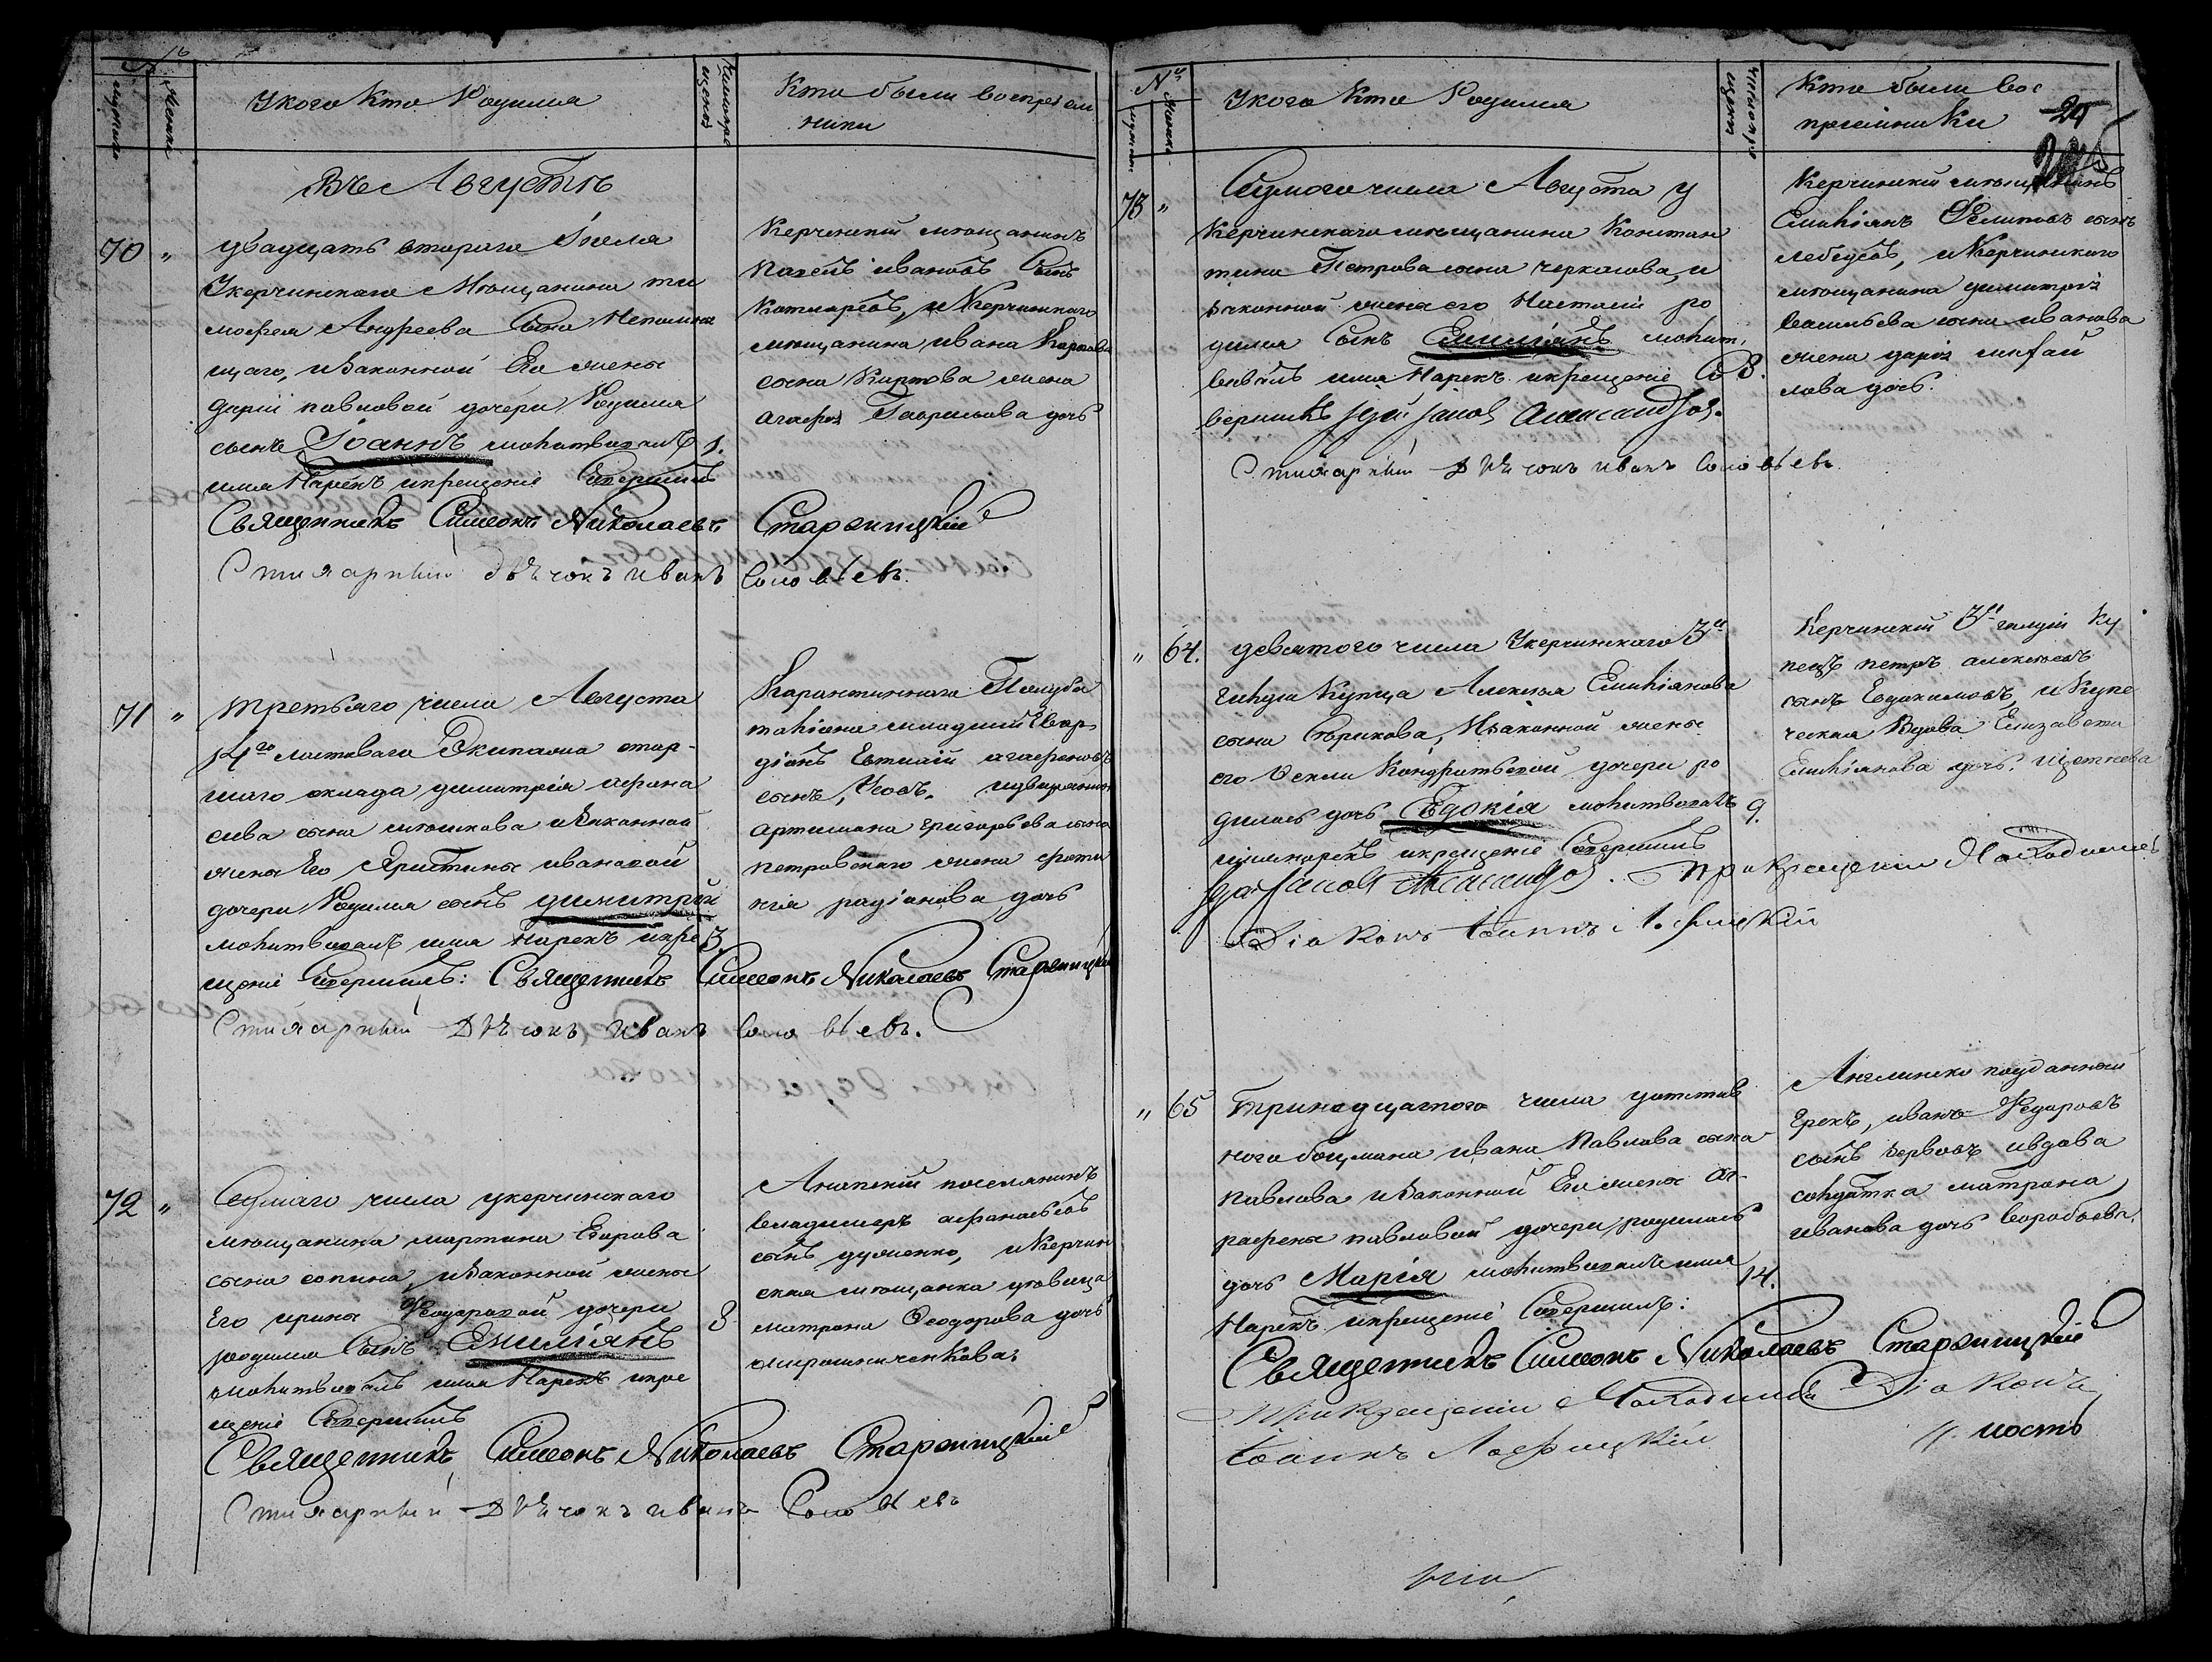 №
мужеска
женска
У кого кто Родился
Кто были воспрiем
ники
Въ Августѣ
70 "
двадцать втораго Iюля
У керчинскаго Мещанина ти
мофея Андреева Сына Непомня
щаго, и Законной Его жены
Дарiи павловой дочери Родился
сынъ Iоаннъ молитвовалъ 1.
имя Нарекъ и крещенiе Совершилъ
Священникъ Симеонъ Николаевъ Старжицкiй
Стихарный дьячокъ иванъ Соловьевъ.
Керченскiй мещанинъ
Павелъ ивановъ Сынъ
Котляровъ, и Керчинскаго
мещанина ивана
сына жена
агафья Гаврилова дочь
71 "
третьяго числа Августа
14го ластоваго Экипажа стар-
шаго димитрiя афана
сiева сына и Законной
жены Его Христины ивановой
дочери Родился сынъ димитрiй
молитвовалъ имя Нарекъ и кре 3.
щенiе Совершилъ: Священникъ Симеонъ Николаевъ Старжицкiй
Стихарный Дьячокъ Иванъ Соловьевъ.
Карантиннаго Полуба
талiона младшiй Гвар
дiонъ Евтихiй агафоновъ
сынъ,
Григорьева сына
петровскаго жена
нiя радiонова дочь
72 "
Седмаго числа у керчинскаго
мещанина мартина Егорова
сына сопина, и Законной жены
Его ирины Феодоровой дочери 8
родился Сынъ Емилiянъ
молитвовалъ имя Нарекъ и кре
щенiе Совершилъ
Священникъ Симеонъ Николаевъ Старжицкiй
Стихарный Дьячокъ иванъ Соловьевъ
Анапскiй поселянинъ
владимеръ афанасьевъ
сынъ думенко, и Керчин
ская мещанка вдовица
матрона Феодорова дочь
мирошниченкова
№
мужеска
женска
У кого кто Родился
Кто были вос
прiемники
25
73 "
Седмого числа Августа у
Керчинскаго мещанина Констан
тина Петрова сына черкасова, и
законной жены его Наталiи ро
дился Сынъ Емилiянъ молит,
вовалъ имя Нарекъ и крещенiе Со 8.
вершилъ
Стихарный Дьячокъ иванъ Соловьевъ.
Керчинскiй мещанинъ
Емилiянъ Филиповъ сынъ
лебедевъ, и Керчинскаго
мещанина димитрiя
васильева сына иванова
жена дарiя михай
лова дочь.
" 64.
девятого числа У керчинскаго 3й
Гилдiи Купца Алексея Емилiянова
сына Серикова, И Законной жены
его Феклы Кондратьевой дочери ро
дилась дочь Евдокiя молитвовалъ 9.
имя нарекъ и крещенiе Совершилъ
При Крещенiи Находился
Дiаконъ Iоаннъ
Керчинскiй 3й гилдiи Ку
пецъ петръ алексеевъ
сынъ Евдокимовъ, и Купе
ческая Вдова Елизавета
Емилiянова дочь Щеткова
" 65
Тринадцатого числа у отстав
ного боцмана ивана Павлова сына
Павлова и Законной Его жены аг-
рафены павловой дочери родилась
дочь Марiя молитвовалъ имя 14.
Нарекъ и крещенiе Совершилъ:
Священникъ Симеонъ Николаевъ Старжицкiй
При Крещенiи Находился Дiаконъ
Iоаннъ
Англински подданный
Грекъ, иванъ Федоровъ
сынъ и вдова
солдатка матрона
иванова дочь Воробьева.
ность